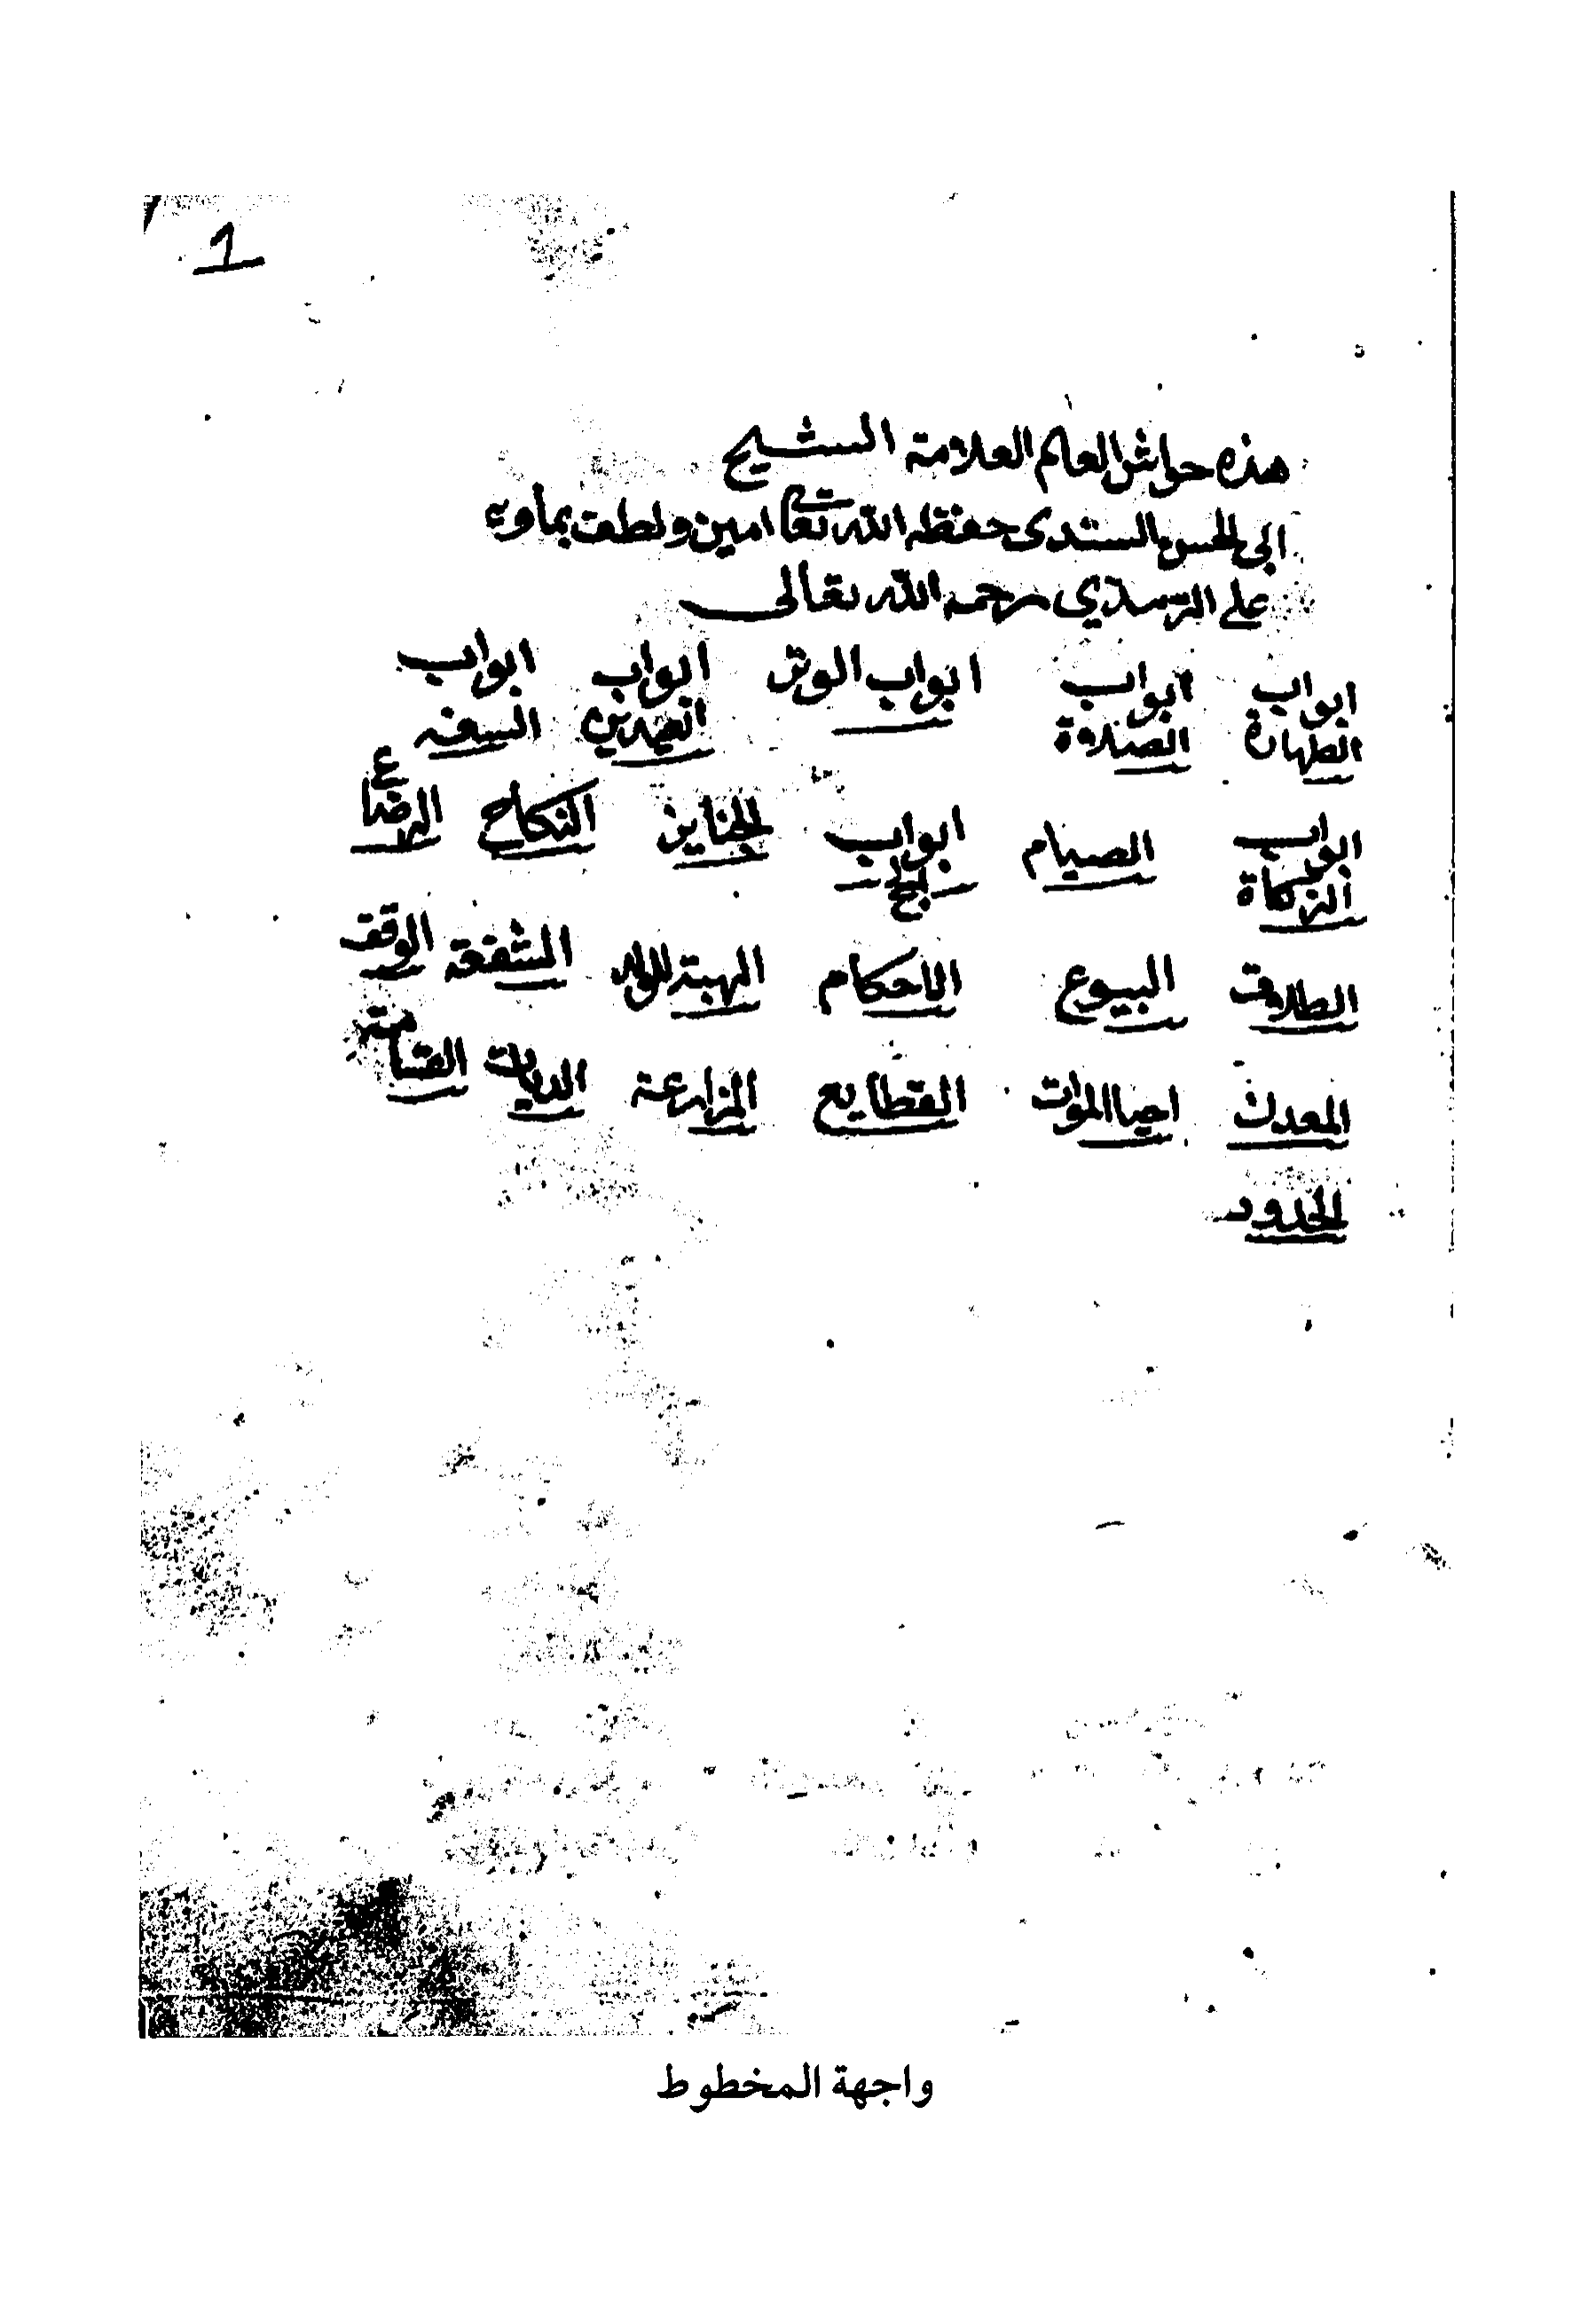 1
هذه حواش العالم العلامة الشيخ
ابى الحسن السندى حفظه الله تعا امين ولطف به
على الترمذي رحمه الله تعالى
ابواب الطهارة ابواب الصلاة ابواب الوتر ابواب العيدين ابواب السفر
ابواب الزكاة الصيام ابواب الحج الجنايز النكاح الرضاع
الطلاق البيوع الاحكام الهبة للولد الشفعة الوقف
المعدن احيا الموات القطايع المزارعة الديات القسامة
الحدود
واجهة المخطوط